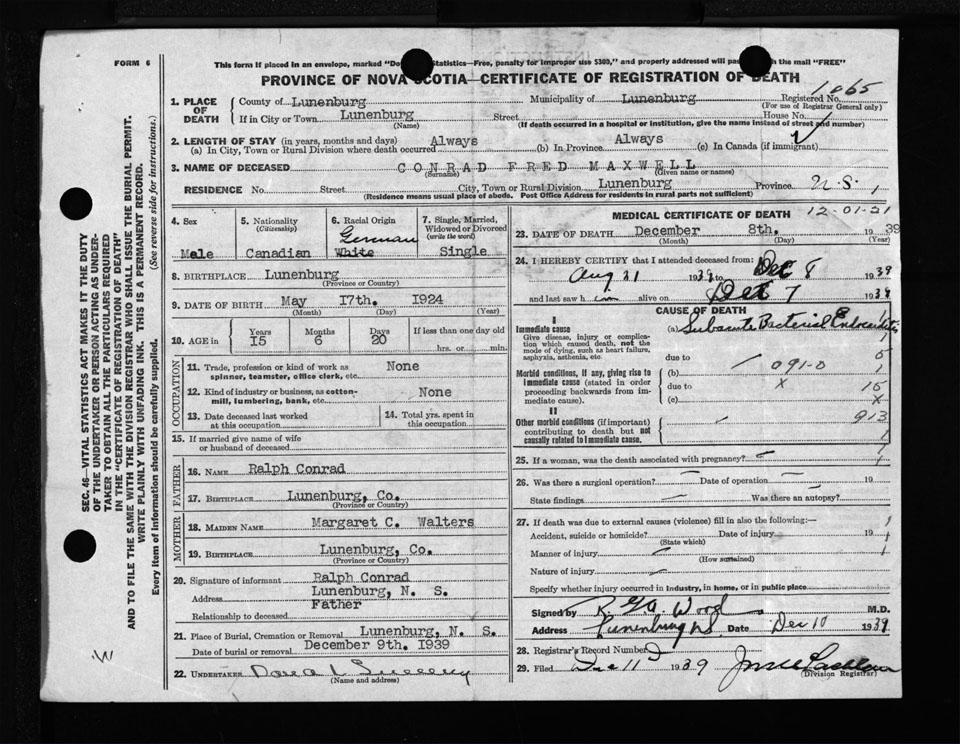 FORM 6
This form if placed in an envelope, marked "Do Statistics—Free, penalty for improper use $300," and properly addressed will pas with the mail "FREE"
PROVINCE OF NOVA SCOTIA—CERTIFICATE OF REGISTRATION OF DEATH
1065
1. PLACE OF DEATH County of Lunenburg Municipality of Lunenburg Registered No.
(For use of Registrar General only)
If in City or Town Lunenburg Street House No.
(Name) (If death occurred in a hospital or institution, give the name instead of street and number)
2. LENGTH OF STAY (in years, months and days)
(a) In City, Town or Rural Division where death occurred Always (b) In Province Always (c) In Canada (if immigrant)
3. NAME OF DECEASED CONRAD FRED MAXWELL
(Surname) (Given name or names)
RESIDENCE No. Street City, Town or Rural Division Lunenburg Province N.S.
(Residence means usual place of abode. Post Office Address for residents in rural parts not sufficient)
4. Sex Male
5. Nationality (Citizenship) Canadian
6. Racial Origin German White
7. Single, Married, Widowed or Divorced (write the word) Single
8. BIRTHPLACE Lunenburg
(Province or Country)
9. DATE OF BIRTH May 17th. 1924
(Month) (Day) (Year)
10. AGE in Years 15 Months 6 Days 20 If less than one day old
hrs. or min.
OCCUPATION
11. Trade, profession or kind of work as spinner, teamster, office clerk, etc. None
12. Kind of industry or business, as cotton-mill, lumbering, bank, etc. None
13. Date deceased last worked at this occupation
14. Total yrs. spent in this occupation
15. If married give name of wife or husband of deceased
FATHER
16. NAME Ralph Conrad
17. BIRTHPLACE Lunenburg, Co.
(Province or Country)
MOTHER
18. MAIDEN NAME Margaret C. Walters
19. BIRTHPLACE Lunenburg, Co.
(Province or Country)
20. Signature of informant Ralph Conrad
Address Lunenburg, N. S.
Relationship to deceased Father
21. Place of Burial, Cremation or Removal Lunenburg, N. S.
Date of burial or removal December 9th. 1939
22. UNDERTAKER
(Name and address)
MEDICAL CERTIFICATE OF DEATH 12-01-21
23. DATE OF DEATH December 8th. 1939
(Month) (Day) (Year)
24. I HEREBY CERTIFY that I attended deceased from:
Aug 31 1939 to Dec 8 1939
and last saw him alive on Dec 7 1939
CAUSE OF DEATH
I
Immediate cause (a) Subacute Bacterial Endocarditis
Give disease, injury or complication which caused death, not the mode of dying, such as heart failure, asphyxia, asthenia, etc.
due to
Morbid conditions, if any, giving rise to immediate cause (stated in order proceeding backwards from immediate cause).
(b) 091-0
due to x 15
(c) x
II
Other morbid conditions (if important) contributing to death but not causally related to immediate cause. 913
25. If a woman, was the death associated with pregnancy?
26. Was there a surgical operation? Date of operation 19
State findings Was there an autopsy?
27. If death was due to external causes (violence) fill in also the following:—
Accident, suicide or homicide? Date of injury 19
(State which)
Manner of injury
(How sustained)
Nature of injury
Specify whether injury occurred in industry, in home, or in public place
Signed by R. G. A. Wood M.D.
Address Lunenburg NS Date Dec 10 1939
28. Registrar's Record Number
29. Filed Dec 11 1939
(Division Registrar)
SEC. 46—VITAL STATISTICS ACT MAKES IT THE DUTY
OF THE UNDERTAKER OR PERSON ACTING AS UNDER-
TAKER TO OBTAIN ALL THE PARTICULARS REQUIRED
IN THE "CERTIFICATE OF REGISTRATION OF DEATH"
AND TO FILE THE SAME WITH THE DIVISION REGISTRAR WHO SHALL ISSUE THE BURIAL PERMIT.
WRITE PLAINLY WITH UNFADING INK. THIS IS A PERMANENT RECORD.
Every item of Information should be carefully supplied. (See reverse side for instructions.)